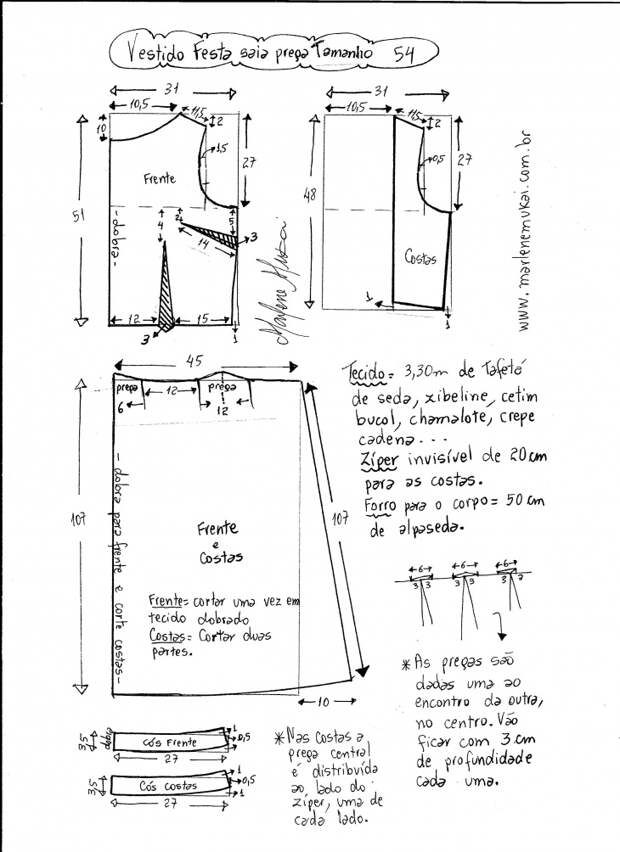 Vestido Festa saia prega Tamanho 54
31
10,5
11,5
2
10
1,5
27
Frente
51
- dobra -
4
2
5
14
3
12
15
3
1
Marlene Mukai
31
10,5
11,5
2
0,5
27
48
Costas
1
1
www.marlenemukai.com.br
45
prega
12
prega
6
12
107
107
- dobra para frente e corte costas -
Frente
e
Costas
Frente= cortar uma vez em
tecido dobrado
Costas= Cortar duas
partes.
10
Tecido= 3,30m de Tafetá
de seda, xibeline, cetim
bucol, chamalote, crepe
cadena...
Zíper invisível de 20cm
para as costas.
Forro para o corpo= 50 cm
de alpaseda.
6
6
6
3 3
3 3
3 3
*As pregas são
dadas uma ao
encontro da outra,
no centro. Vão
ficar com 3 cm
de profundidade
cada uma.
3,5
dobra
Cós Frente
1
0,5
1
27
3,5
Cós costas
1
0,5
1
27
*Nas Costas a
prega central
é distribuída
ao lado do
zíper, uma de
cada lado.